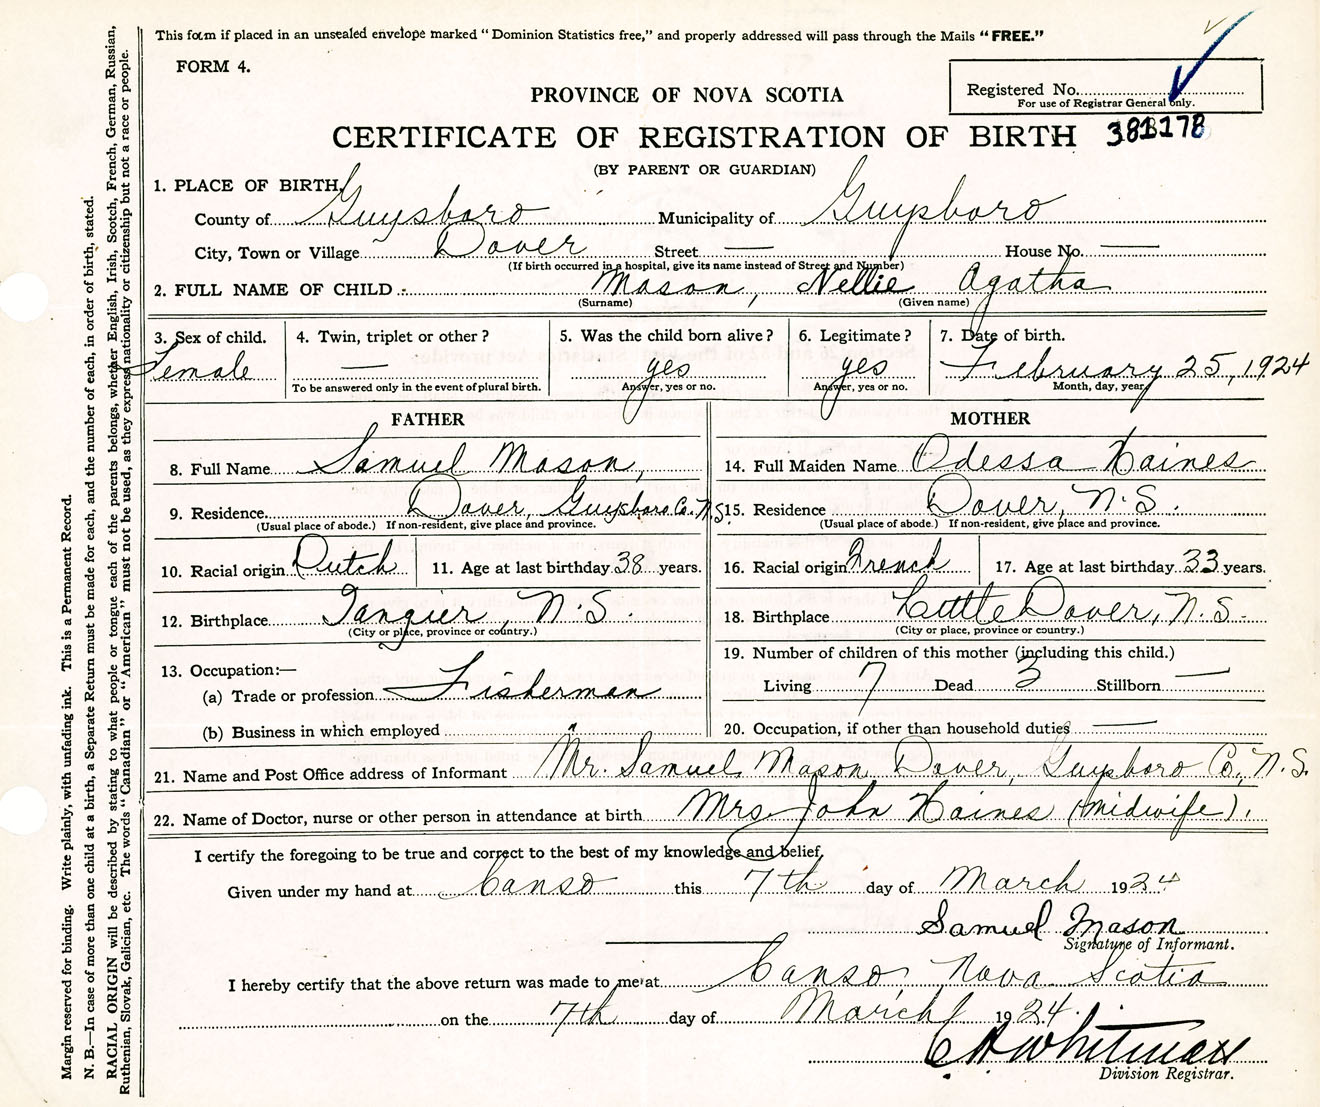 This form if placed in an unsealed envelope marked "Dominion Statistics free," and properly addressed will pass through the Mails "FREE."
FORM 4.
Registered No.
For use of Registrar General only.
PROVINCE OF NOVA SCOTIA
CERTIFICATE OF REGISTRATION OF BIRTH
(BY PARENT OR GUARDIAN)
1. PLACE OF BIRTH,
County of Guysboro Municipality of Guysboro
City, Town or Village Dover Street — House No. —
(If birth occurred in a hospital, give its name instead of Street and Number)
2. FULL NAME OF CHILD Mason, Nellie Agatha
(Surname) (Given name)
3. Sex of child. Female
4. Twin, triplet or other? —
To be answered only in the event of plural birth.
5. Was the child born alive? yes
Answer, yes or no.
6. Legitimate? yes
Answer, yes or no.
7. Date of birth. February 25, 1924
Month, day, year
FATHER
8. Full Name Samuel Mason,
9. Residence Dover, Guysboro Co. N.S.
(Usual place of abode.) If non-resident, give place and province.
10. Racial origin Dutch 11. Age at last birthday 38 years.
12. Birthplace Tangier, N.S.
(City or place, province or country.)
13. Occupation:—
(a) Trade or profession Fisherman
(b) Business in which employed
MOTHER
14. Full Maiden Name Odessa Haines
15. Residence Dover, N.S.
(Usual place of abode.) If non-resident, give place and province.
16. Racial origin French 17. Age at last birthday 33 years.
18. Birthplace Little Dover, N.S.
(City or place, province or country.)
19. Number of children of this mother (including this child.)
Living 7 Dead 3 Stillborn —
20. Occupation, if other than household duties —
21. Name and Post Office address of Informant Mr. Samuel Mason, Dover, Guysboro Co., N.S.
22. Name of Doctor, nurse or other person in attendance at birth Mrs. John Haines (midwife).
I certify the foregoing to be true and correct to the best of my knowledge and belief,
Given under my hand at Canso this 7th day of March 1924
Samuel Mason
Signature of Informant.
I hereby certify that the above return was made to me at Canso, Nova Scotia
on the 7th day of March 1924.
Whitman
Division Registrar.
Margin reserved for binding. Write plainly, with unfading ink. This is a Permanent Record.
N. B.—In case of more than one child at a birth, a Separate Return must be made for each, and the number of each, in order of birth, stated.
RACIAL ORIGIN will be described by stating to what people or tongue each of the parents belongs, whether English, Irish, Scotch, French, German, Russian,
Ruthenian, Slovak, Galician, etc. The words "Canadian" or "American" must not be used, as they express nationality or citizenship but not a race or people.